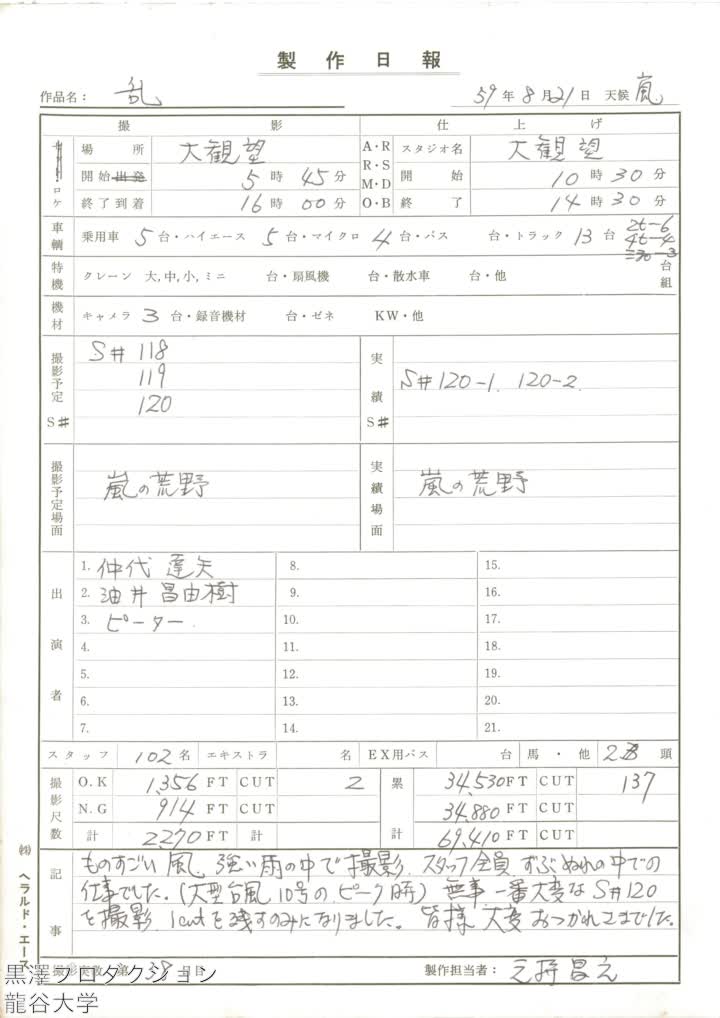 製作日報
作品名: 乱 59年8月21日 天候 嵐
撮影 仕上げ
ロケ 場所 大観望 A・R R・S M・D O・B スタジオ名 大観望
開始出発 5時45分 開始 10時30分
終了到着 16時00分 終了 14時30分
車輌 乗用車 5台・ハイエース 5台・マイクロ 4台・バス 台・トラック 13台 2t-6 4t-4
特機 クレーン 大,中,小,ミニ 台・扇風機 台・散水車 台・他 台組
機材 キャメラ 3台・録音機材 台・ゼネ KW・他
撮影予定S# S#118 実績S# S#120-1. 120-2.
119
120
撮影予定場面 嵐の荒野 実績場面 嵐の荒野
出演者 1. 仲代達矢 8. 15.
2. 油井昌由樹 9. 16.
3. ピーター 10. 17.
4. 11. 18.
5. 12. 19.
6. 13. 20.
7. 14. 21.
スタッフ 102名 エキストラ 名 EX用バス 台 馬・他 頭
撮影尺数 O.K 1,356 FT CUT 2 累計 34,530FT CUT 137
N.G 914 FT 34,880FT
計 2,270FT 計 69,410FT
記事 ものすごい風、強い雨の中で撮影、スタッフ全員ずぶぬれの中での
仕事でした。(大型台風10号のピーク時) 無事一番大変なS#120
を撮影 1cutを残すのみになりました。皆様大変おつかれさまでした。
撮影実数 第38日目 製作担当者:
㈱ヘラルド・エース
黒澤プロダクション
龍谷大学